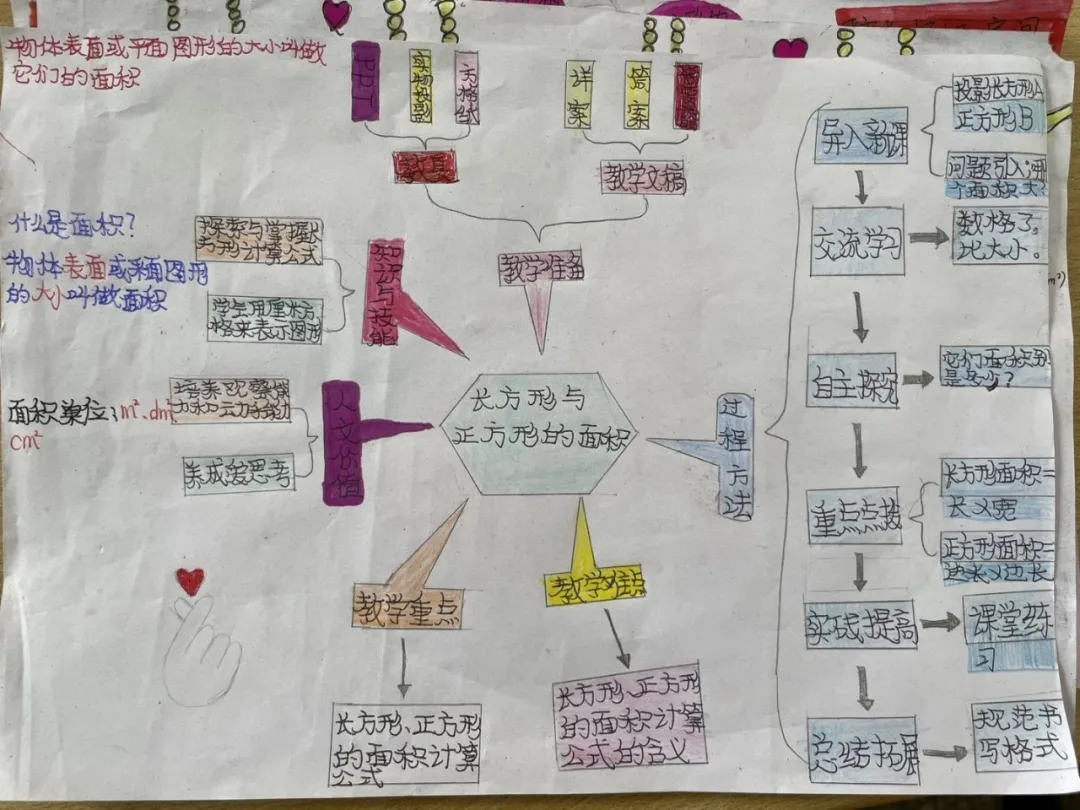 物体表面或平面图形的大小叫做
它们的面积
实物投影
方格纸
详案
简案
教具
教学文稿
教学准备
什么是面积?
物体表面或平面图形
的大小叫做面积
探索与掌握
方形计算公式
学生用厘米方
格来表示图形
知识与技能
面积单位:m²、dm²、
cm²
养成爱思考
人文价值
长方形与
正方形的面积
过程方法
教学重点
长方形、正方形
的面积计算
公式
教学难点
长方形、正方形
的面积计算
公式的含义
导入新课
投影长方形A
正方形B
问题引入:哪
个面积大?
交流学习
数格子。
比大小。
自主探究
它们面积分别
是多少?
重点点拨
长方形面积=
长×宽
正方形面积=
边长×边长
实践提高
课堂练
习
总结拓展
规范书
写格式